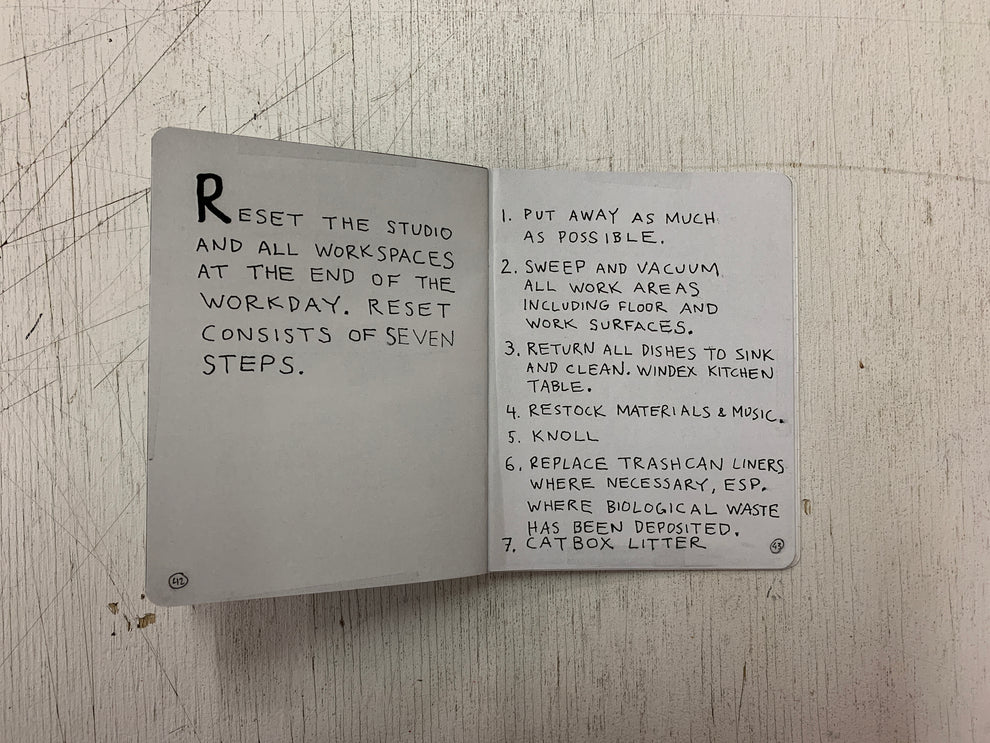 RESET THE STUDIO
AND ALL WORKSPACES
AT THE END OF THE
WORKDAY. RESET
CONSISTS OF SEVEN
STEPS.
42
1. PUT AWAY AS MUCH
AS POSSIBLE.
2. SWEEP AND VACUUM
ALL WORK AREAS
INCLUDING FLOOR AND
WORK SURFACES.
3. RETURN ALL DISHES TO SINK
AND CLEAN. WINDEX KITCHEN
TABLE.
4. RESTOCK MATERIALS & MUSIC.
5. KNOLL
6. REPLACE TRASHCAN LINERS
WHERE NECESSARY, ESP.
WHERE BIOLOGICAL WASTE
HAS BEEN DEPOSITED.
7. CATBOX LITTER
43